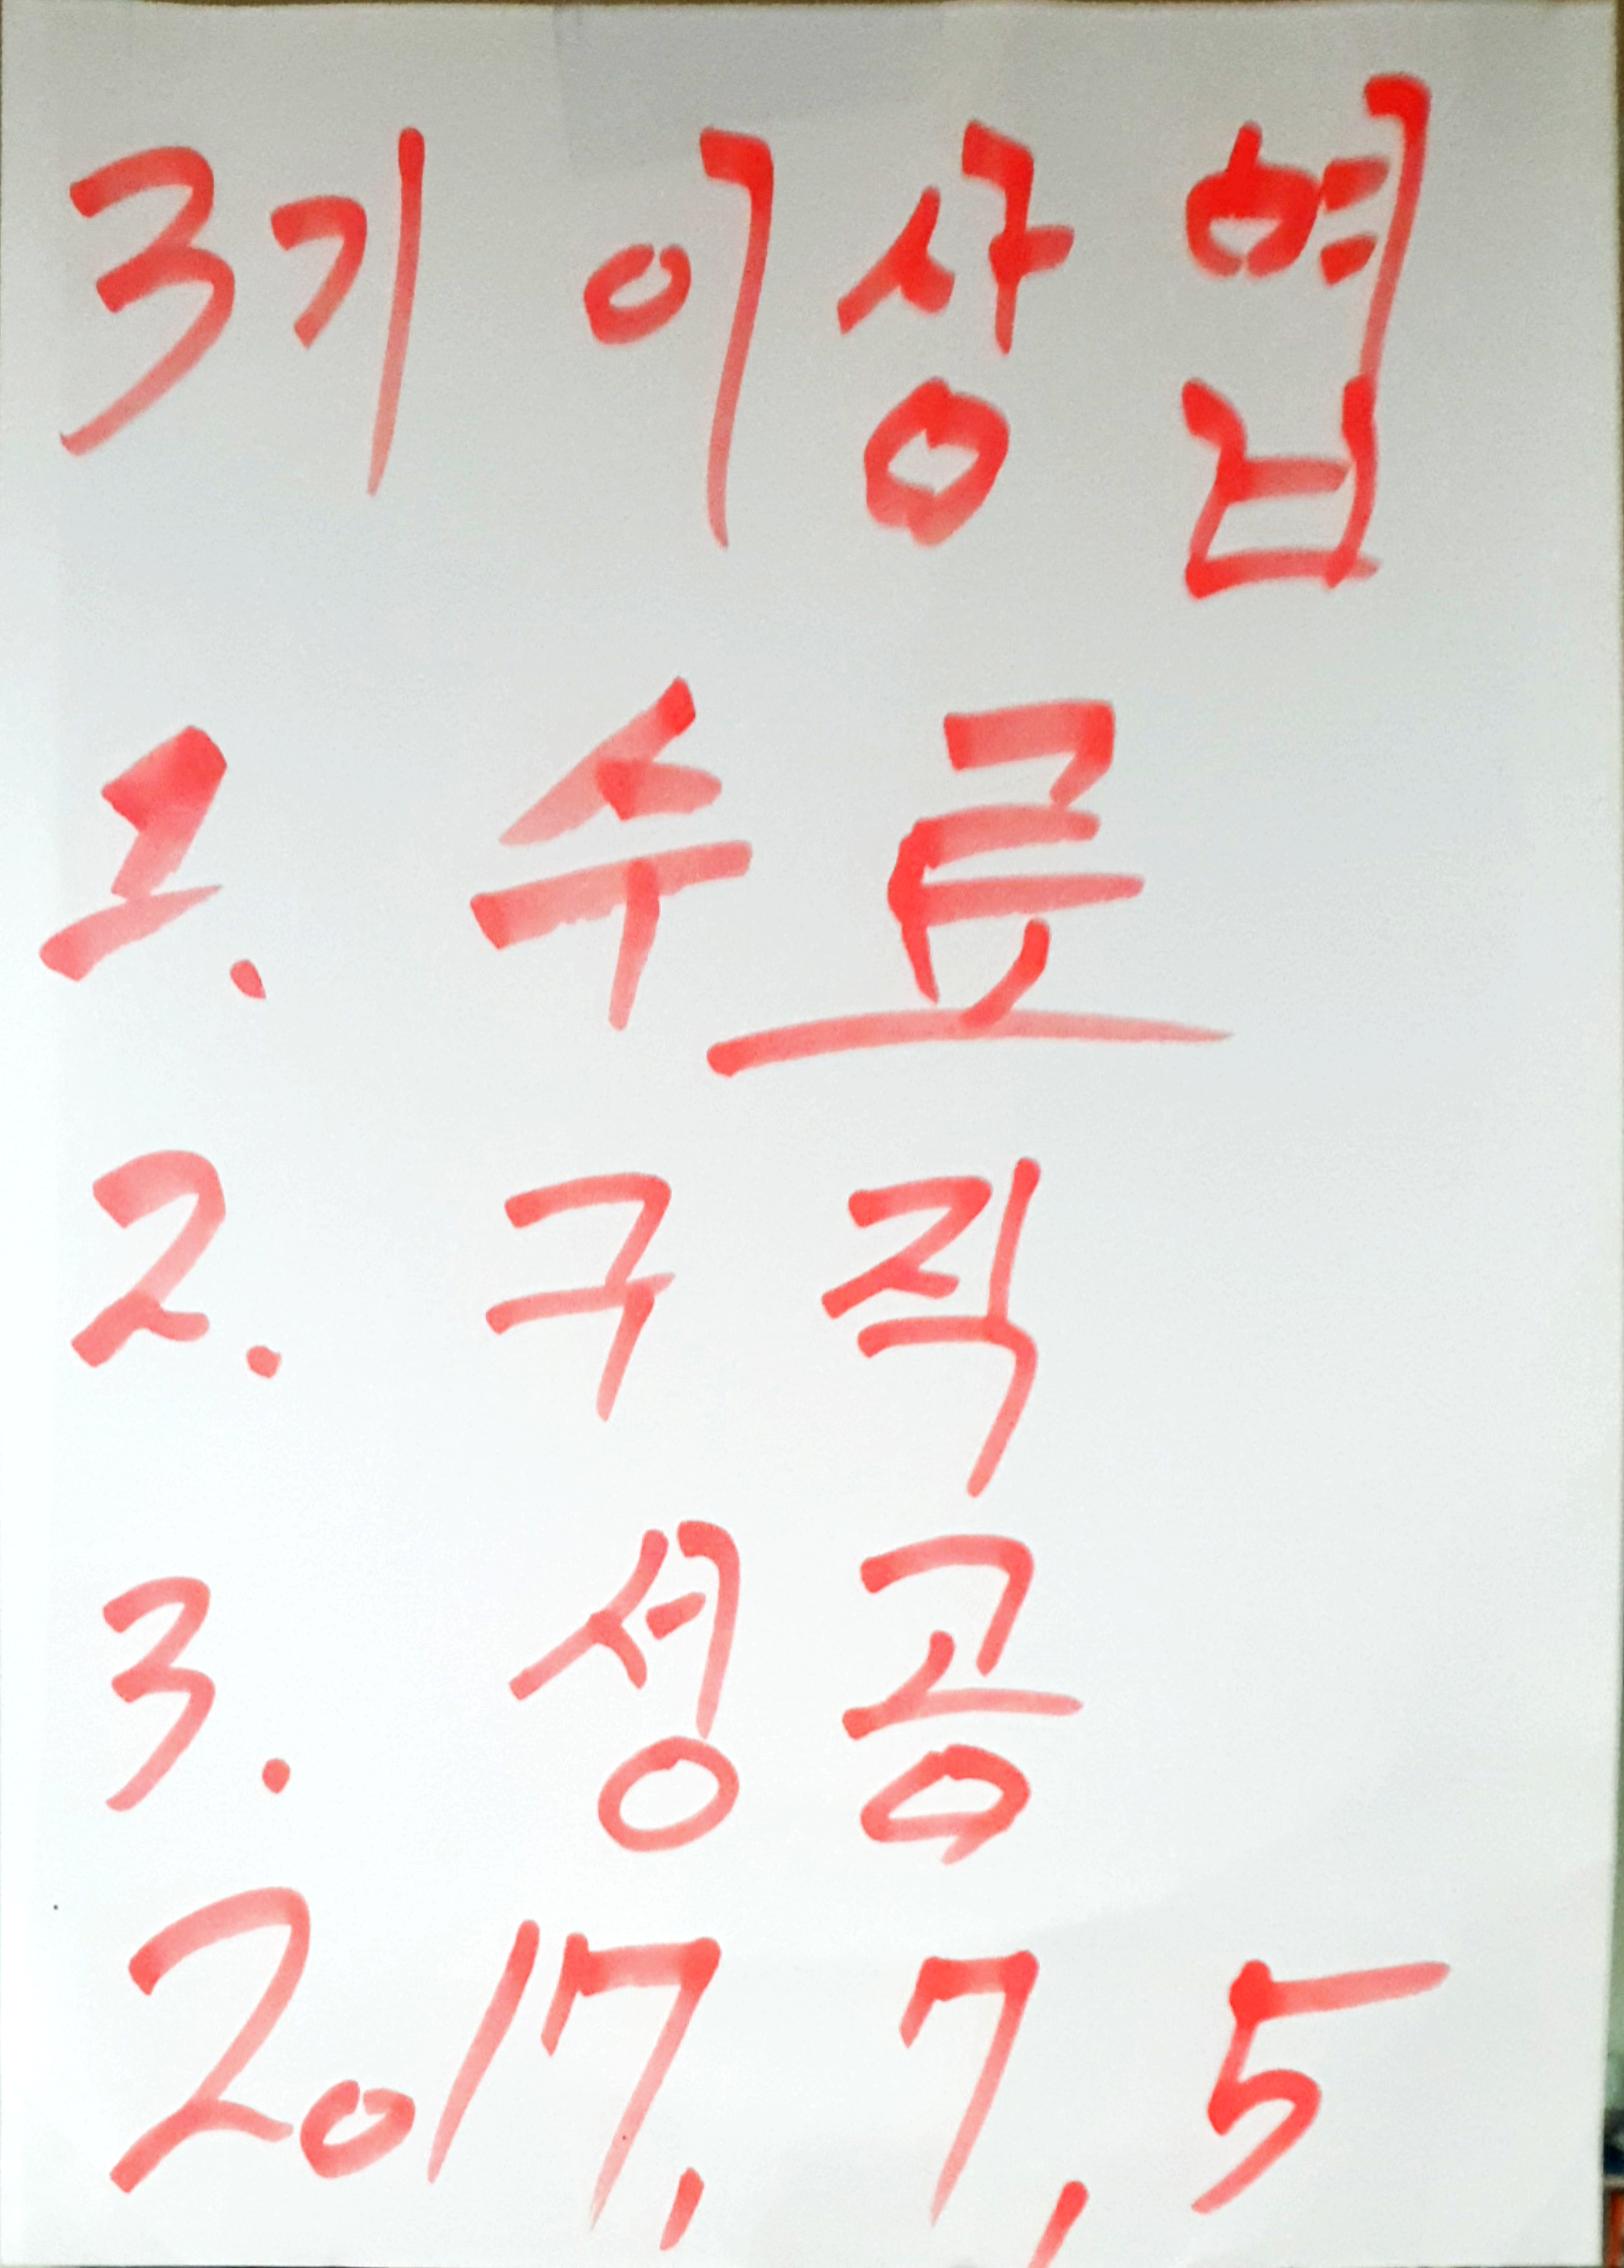 3기 이상협
1. 수료
2. 구직
3. 성공
2017, 7, 5